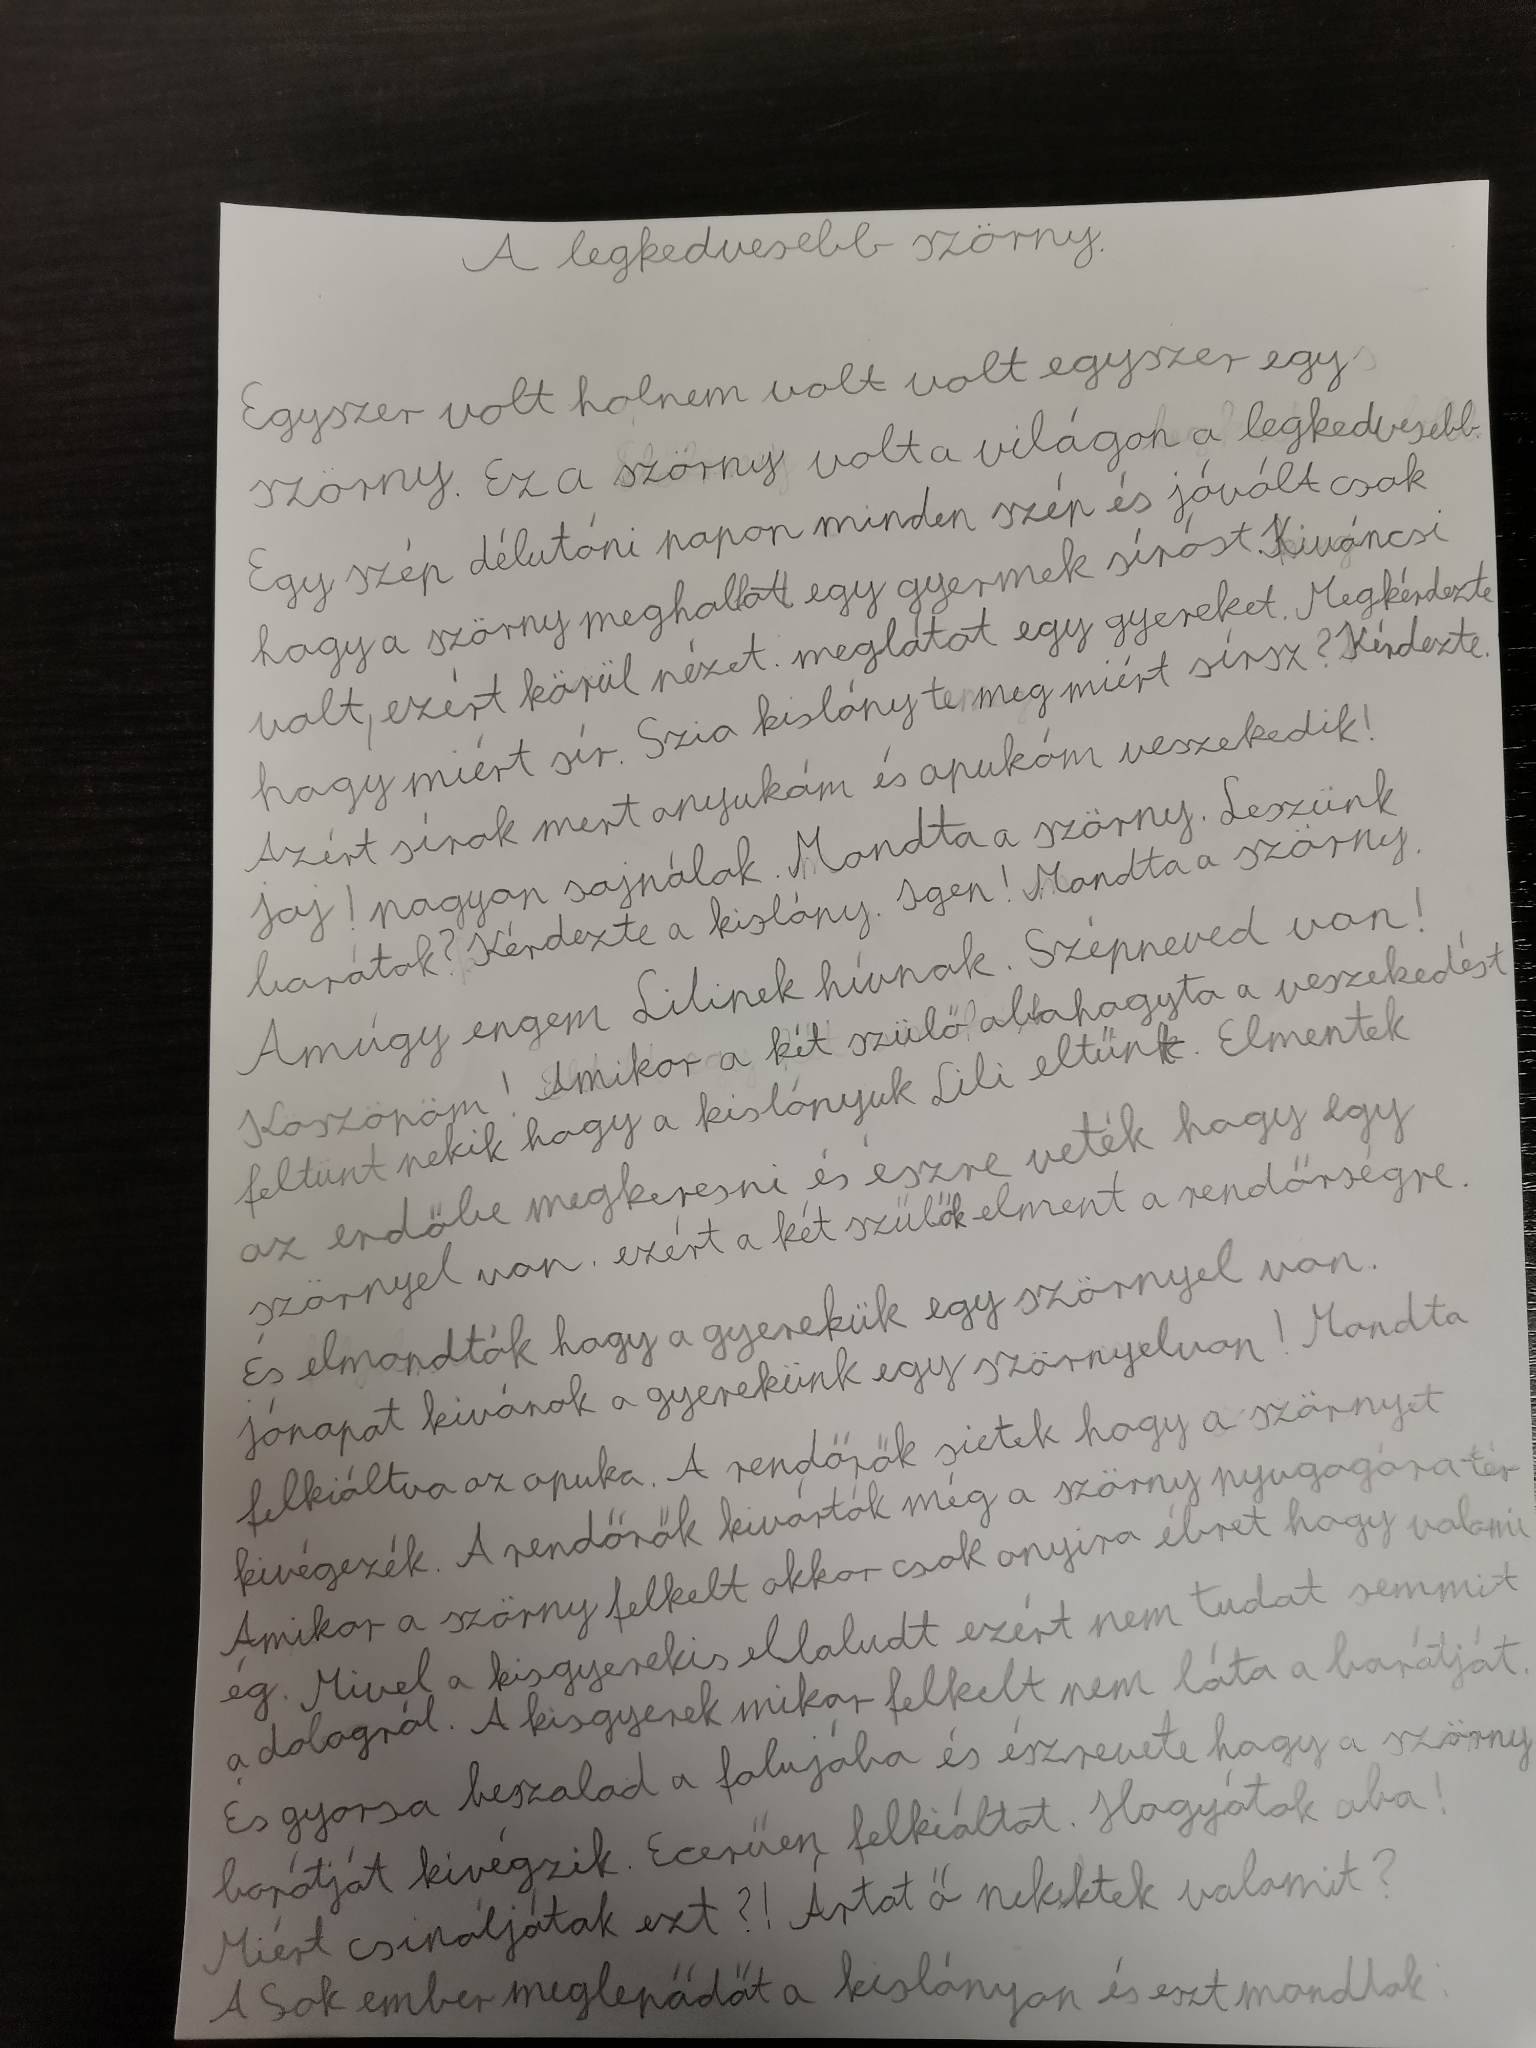 A legkedvesebb szörny.
Egyszer volt holnem volt volt egyszer egy
szörny. Ez a szörny volt a világon a legkedvesebb.
Egy szép délutáni papon minden szép és jóvólt csak
hogy a szörny meghallott egy gyermek sírást. Kiváncsi
volt, ezért körül nézet. meglátot egy gyereket. Megkérdezte
hogy miért sír. Szia kislány te meg miért sírsz? Kérdezte.
Azért sírok mert anyukám és apukám veszekedik!
jaj! nagyon sajnálok. Mondta a szörny. Leszünk
barátok? Kérdezte a kislány. Igen! Mondta a szörny.
Amúgy engem Lilinek hívnak. Szépneved van!
Köszönöm! Amikor a két szülő abbahagyta a veszekedést
feltünt nekik hogy a kislányuk Lili eltünt. Elmentek
az erdőbe megkeresni és észre veték hogy egy
szörnyel van. ezért a két szülők elment a rendőrségre.
És elmondták hogy a gyerekük egy szörnyel van.
jónapot kivánok a gyerekünk egy szörnyelvan! Mondta
felkiáltva az apuka. A rendőrök sietek hogy a szörnyet
kivégezék. A rendőrök kivárták még a szörny nyugagóra tér
Amikor a szörny felkelt akkor csak anyira ébret hogy valami
ég. Mivel a kisgyerekis ellaludt ezért nem tudot semmit
a dologról. A kisgyerek mikor felkelt nem láta a barátját.
És gyorsa beszalad a falujába és észrevete hogy a szörny
barátját kivégzik. Ecerűen felkiáltot. Hagyátok aba!
Miért csináljátok ezt?! Ártot ő nektek valamit?
A Sok ember meglepődőt a kislányon és eszt mondtok: